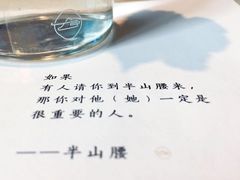 如果
有人请你到半山腰来，
那你对他（她）一定是
很重要的人。
——半山腰